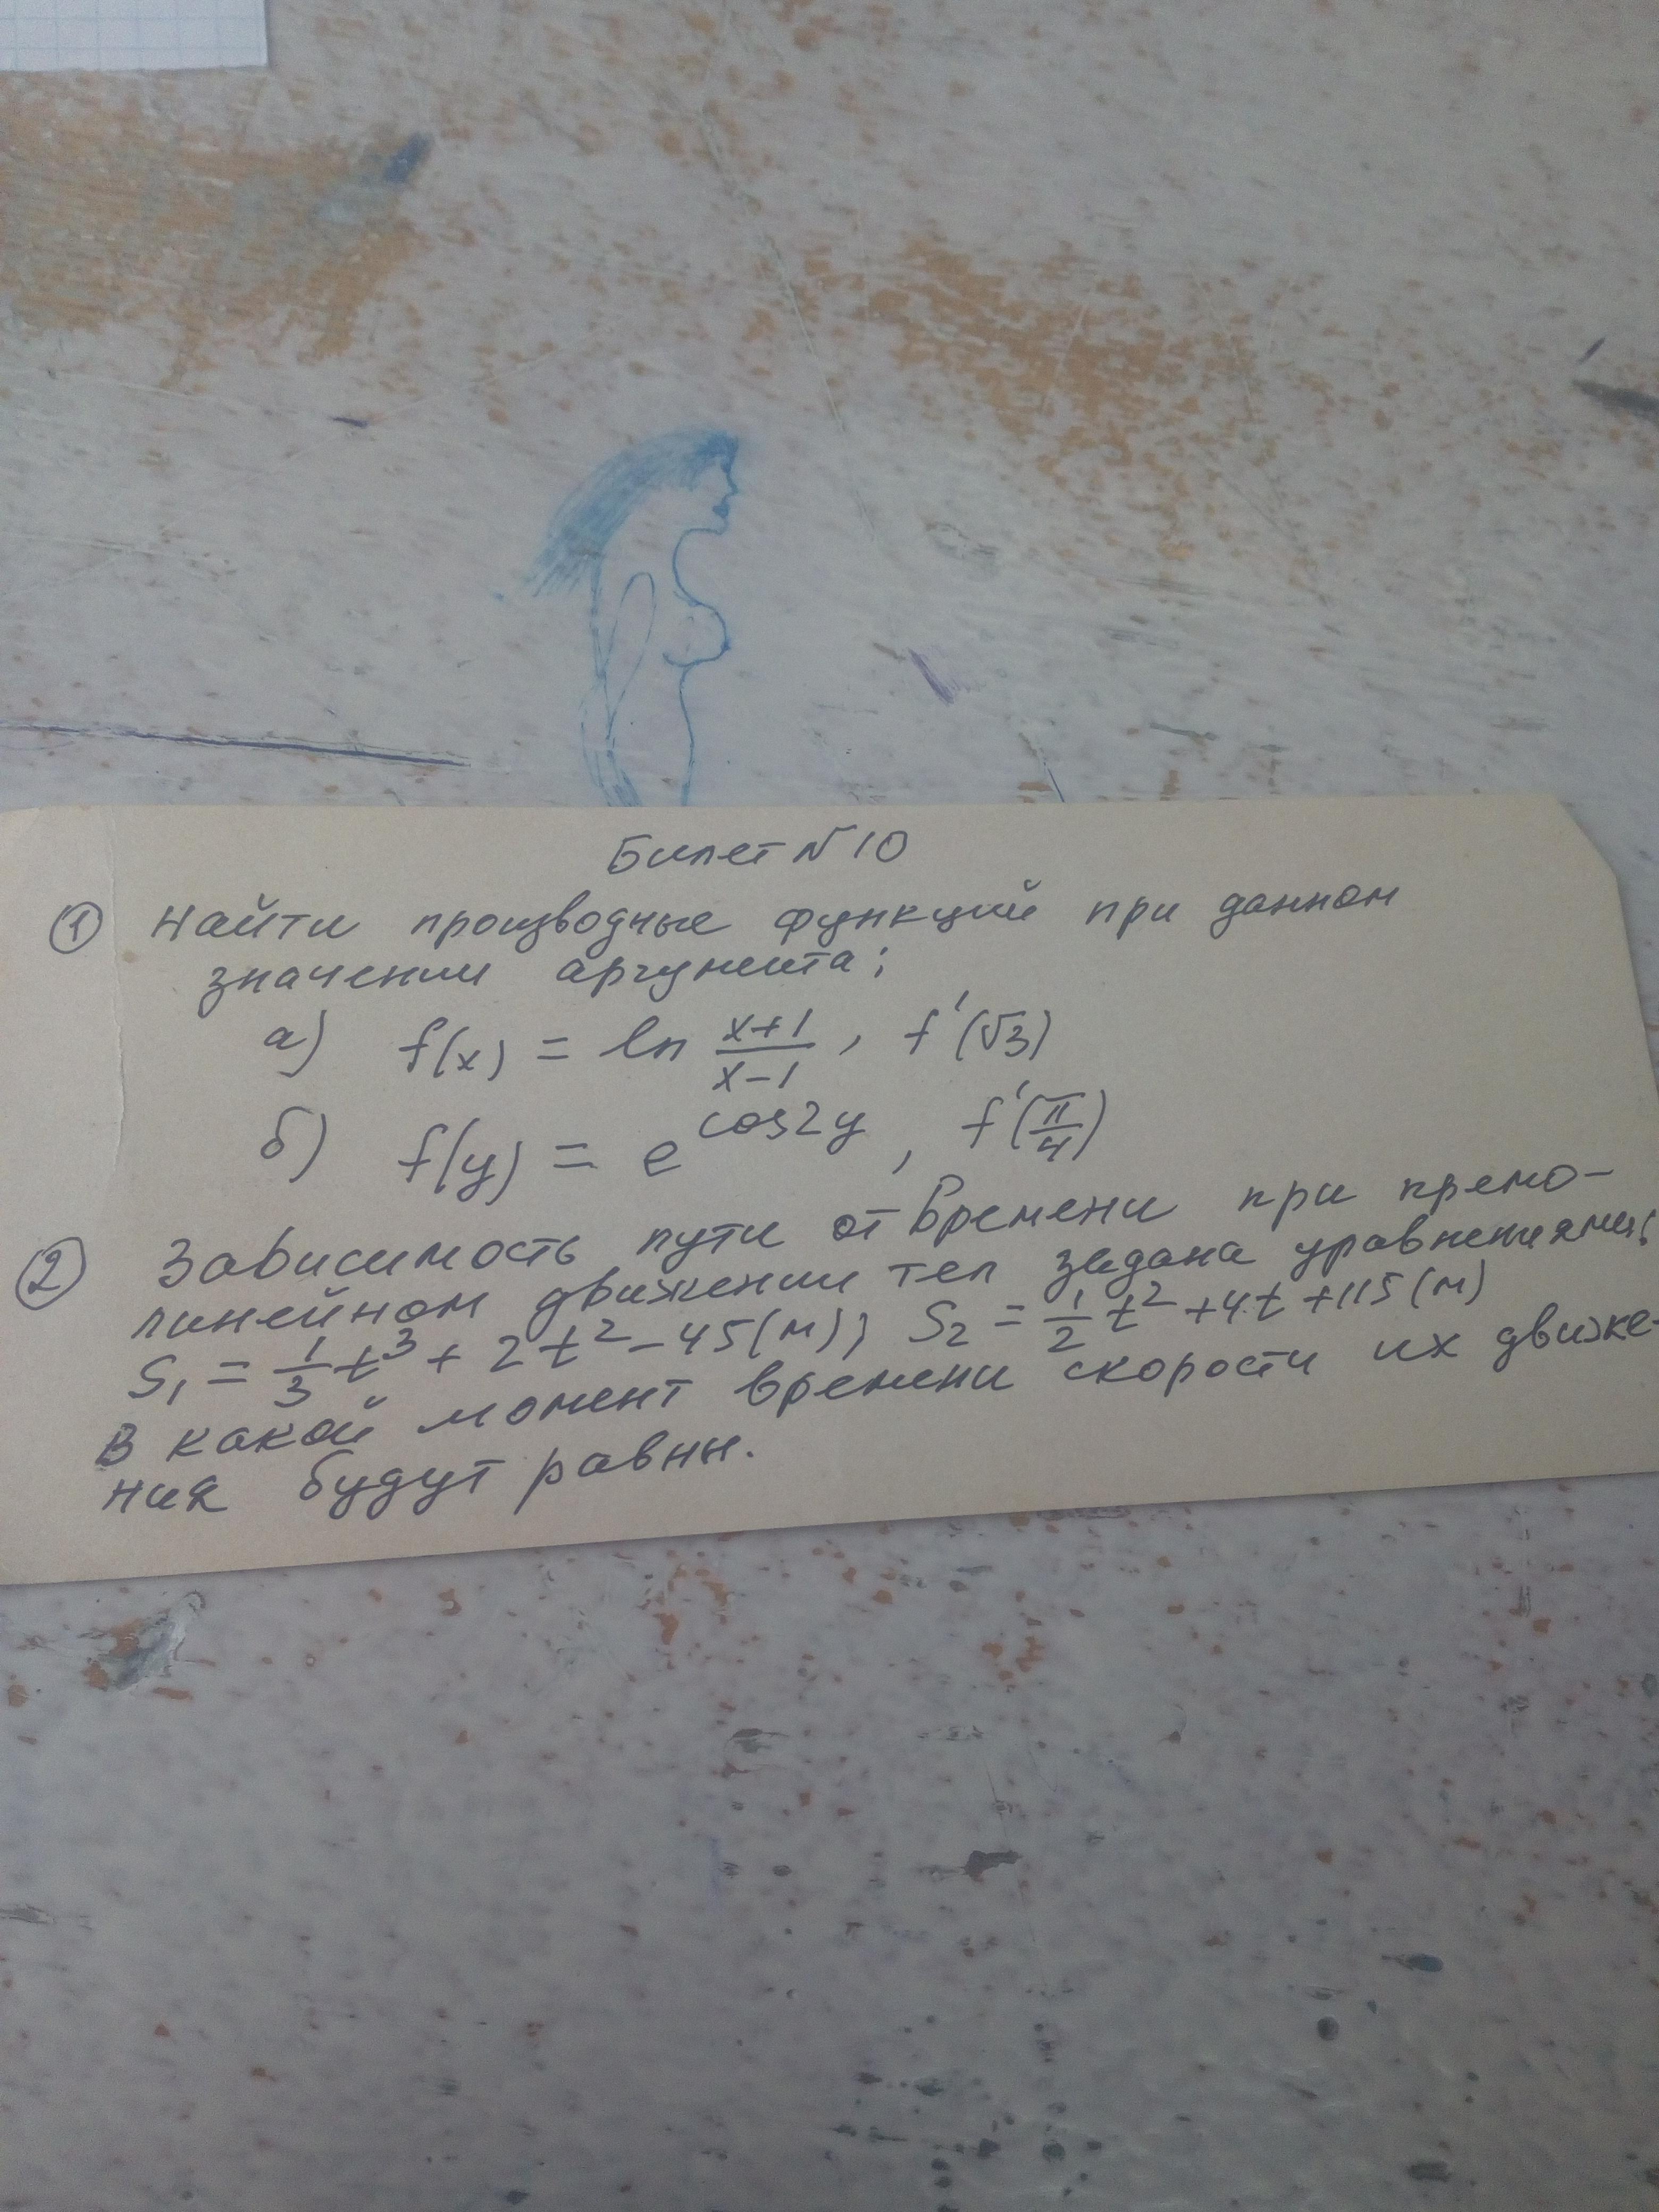 Билет №10
① Найти производные функций при данном
значении аргумента:
а) f(x) = ln \frac{x+1}{x-1}, f'(√3)
б) f(y) = e^{cos2y}, f'(\frac{π}{4})
② Зависимость пути от времени при прямо-
линейном движении тел задана уравнениями:
S₁ = \frac{1}{3}t³ + 2t² - 45(м); S₂ = \frac{1}{2}t² + 4t + 115(м)
В какой момент времени скорости их движе-
ния будут равны.